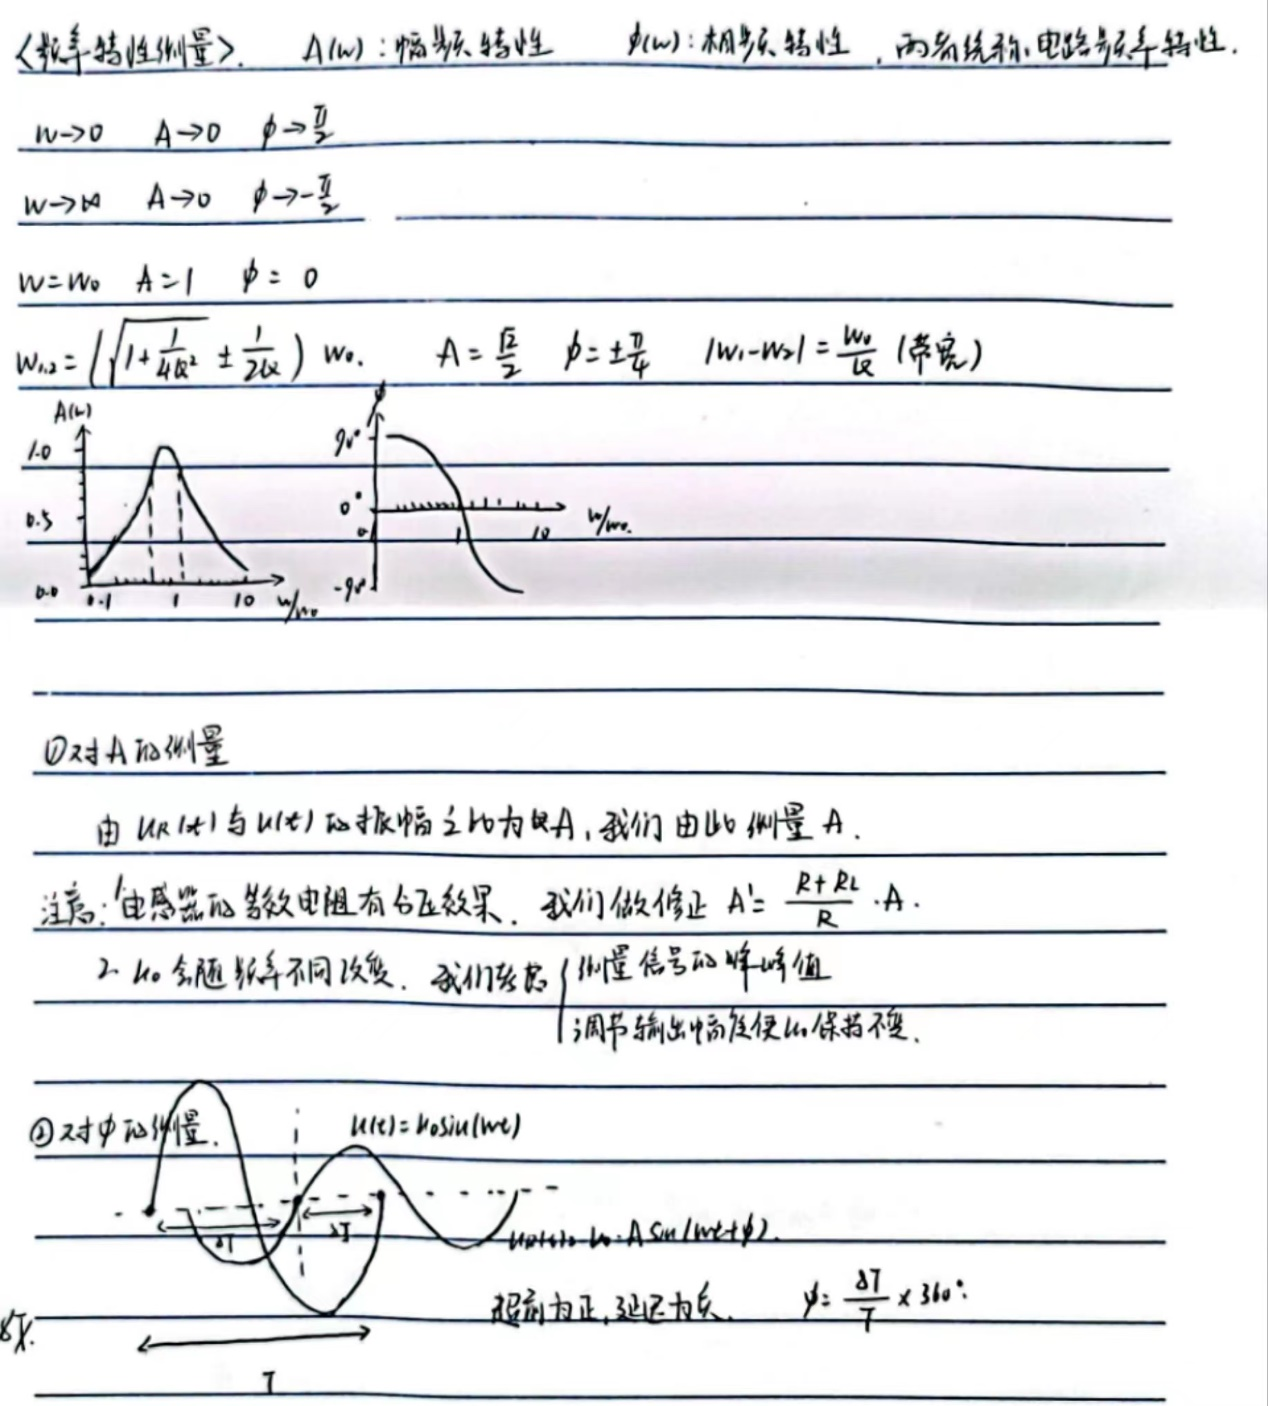 <频率特性测量>. A(w):幅频特性 φ(w):相频特性,两者统称电路频率特性.
w→0 A→0 φ→π/2
w→∞ A→0 φ→-π/2
w=w₀ A=1 φ=0
w₁,₂=(√(1+1/4Q²) ± 1/2Q) w₀. A=√2/2 φ=±π/4 |w₁-w₂|=w₀/Q (带宽)
A(w) φ
1.0 90°
0.5 0°
0 1 10 w/w₀.
0.0 -90°
0.1 1 10 w/w₀
①对A的测量
由 uR(t)与u(t)的振幅之比为A,我们由此测量A.
注意:1电感器的等效电阻有分压效果. 我们做修正 A'=(R+RL)/R·A.
2. u₀会随频率不同改变. 我们 测量信号的峰峰值
调节输出幅度使u₀保持不变.
②对φ的测量. u(t)=u₀sin(wt)
ΔT ΔT
uR(t)=u₀·Asin(wt+φ).
超前为正,延迟为负. φ=ΔT/T×360°.
T